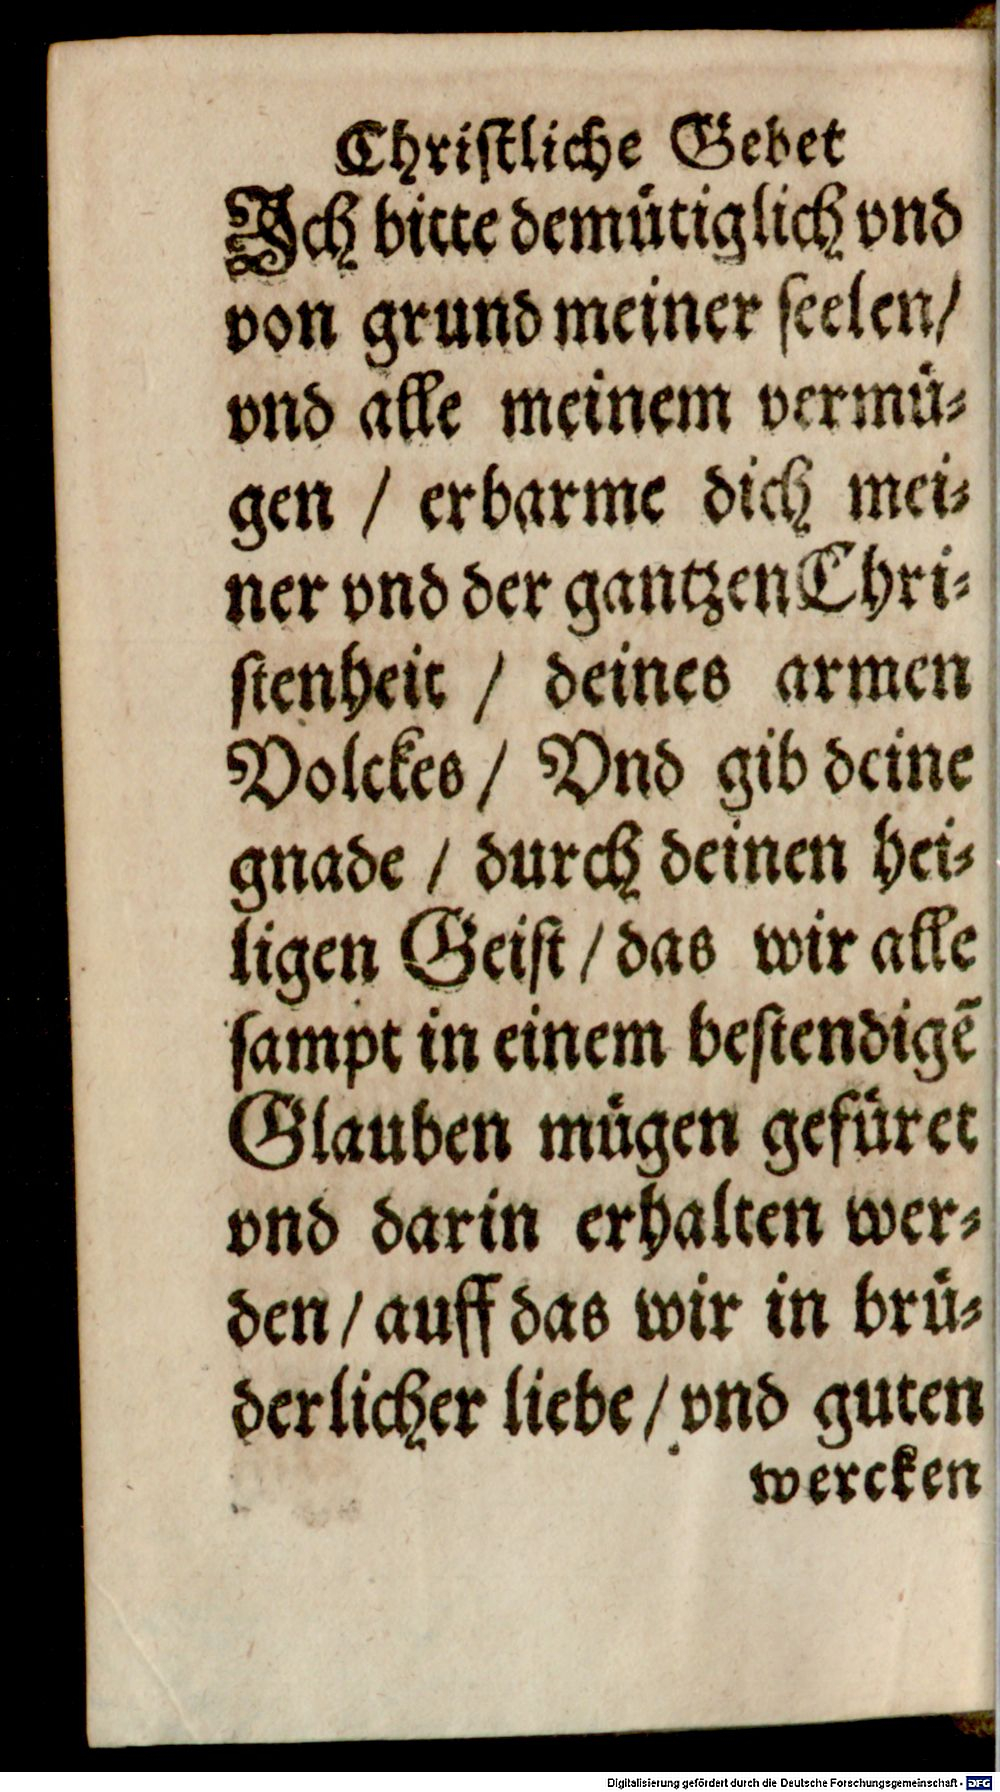 Chriſtliche Gebet
Ich bitte demütiglich vnd
von grund meiner ſeelen/
vnd alle meinem vermü⸗
gen / erbarme dich mei⸗
ner vnd der gantzen Chri⸗
ſtenheit / deines armen
Volckes / Vnd gib deine
gnade / durch deinen hei⸗
ligen Geiſt / das wir alle
ſampt in einem beſtendigē
Glauben mügen gefüret
vnd darin erhalten wer⸗
den / auff das wir in brü⸗
derlicher liebe / vnd guten
wercken
Digitalisierung gefördert durch die Deutsche Forschungsgemeinschaft - DFG